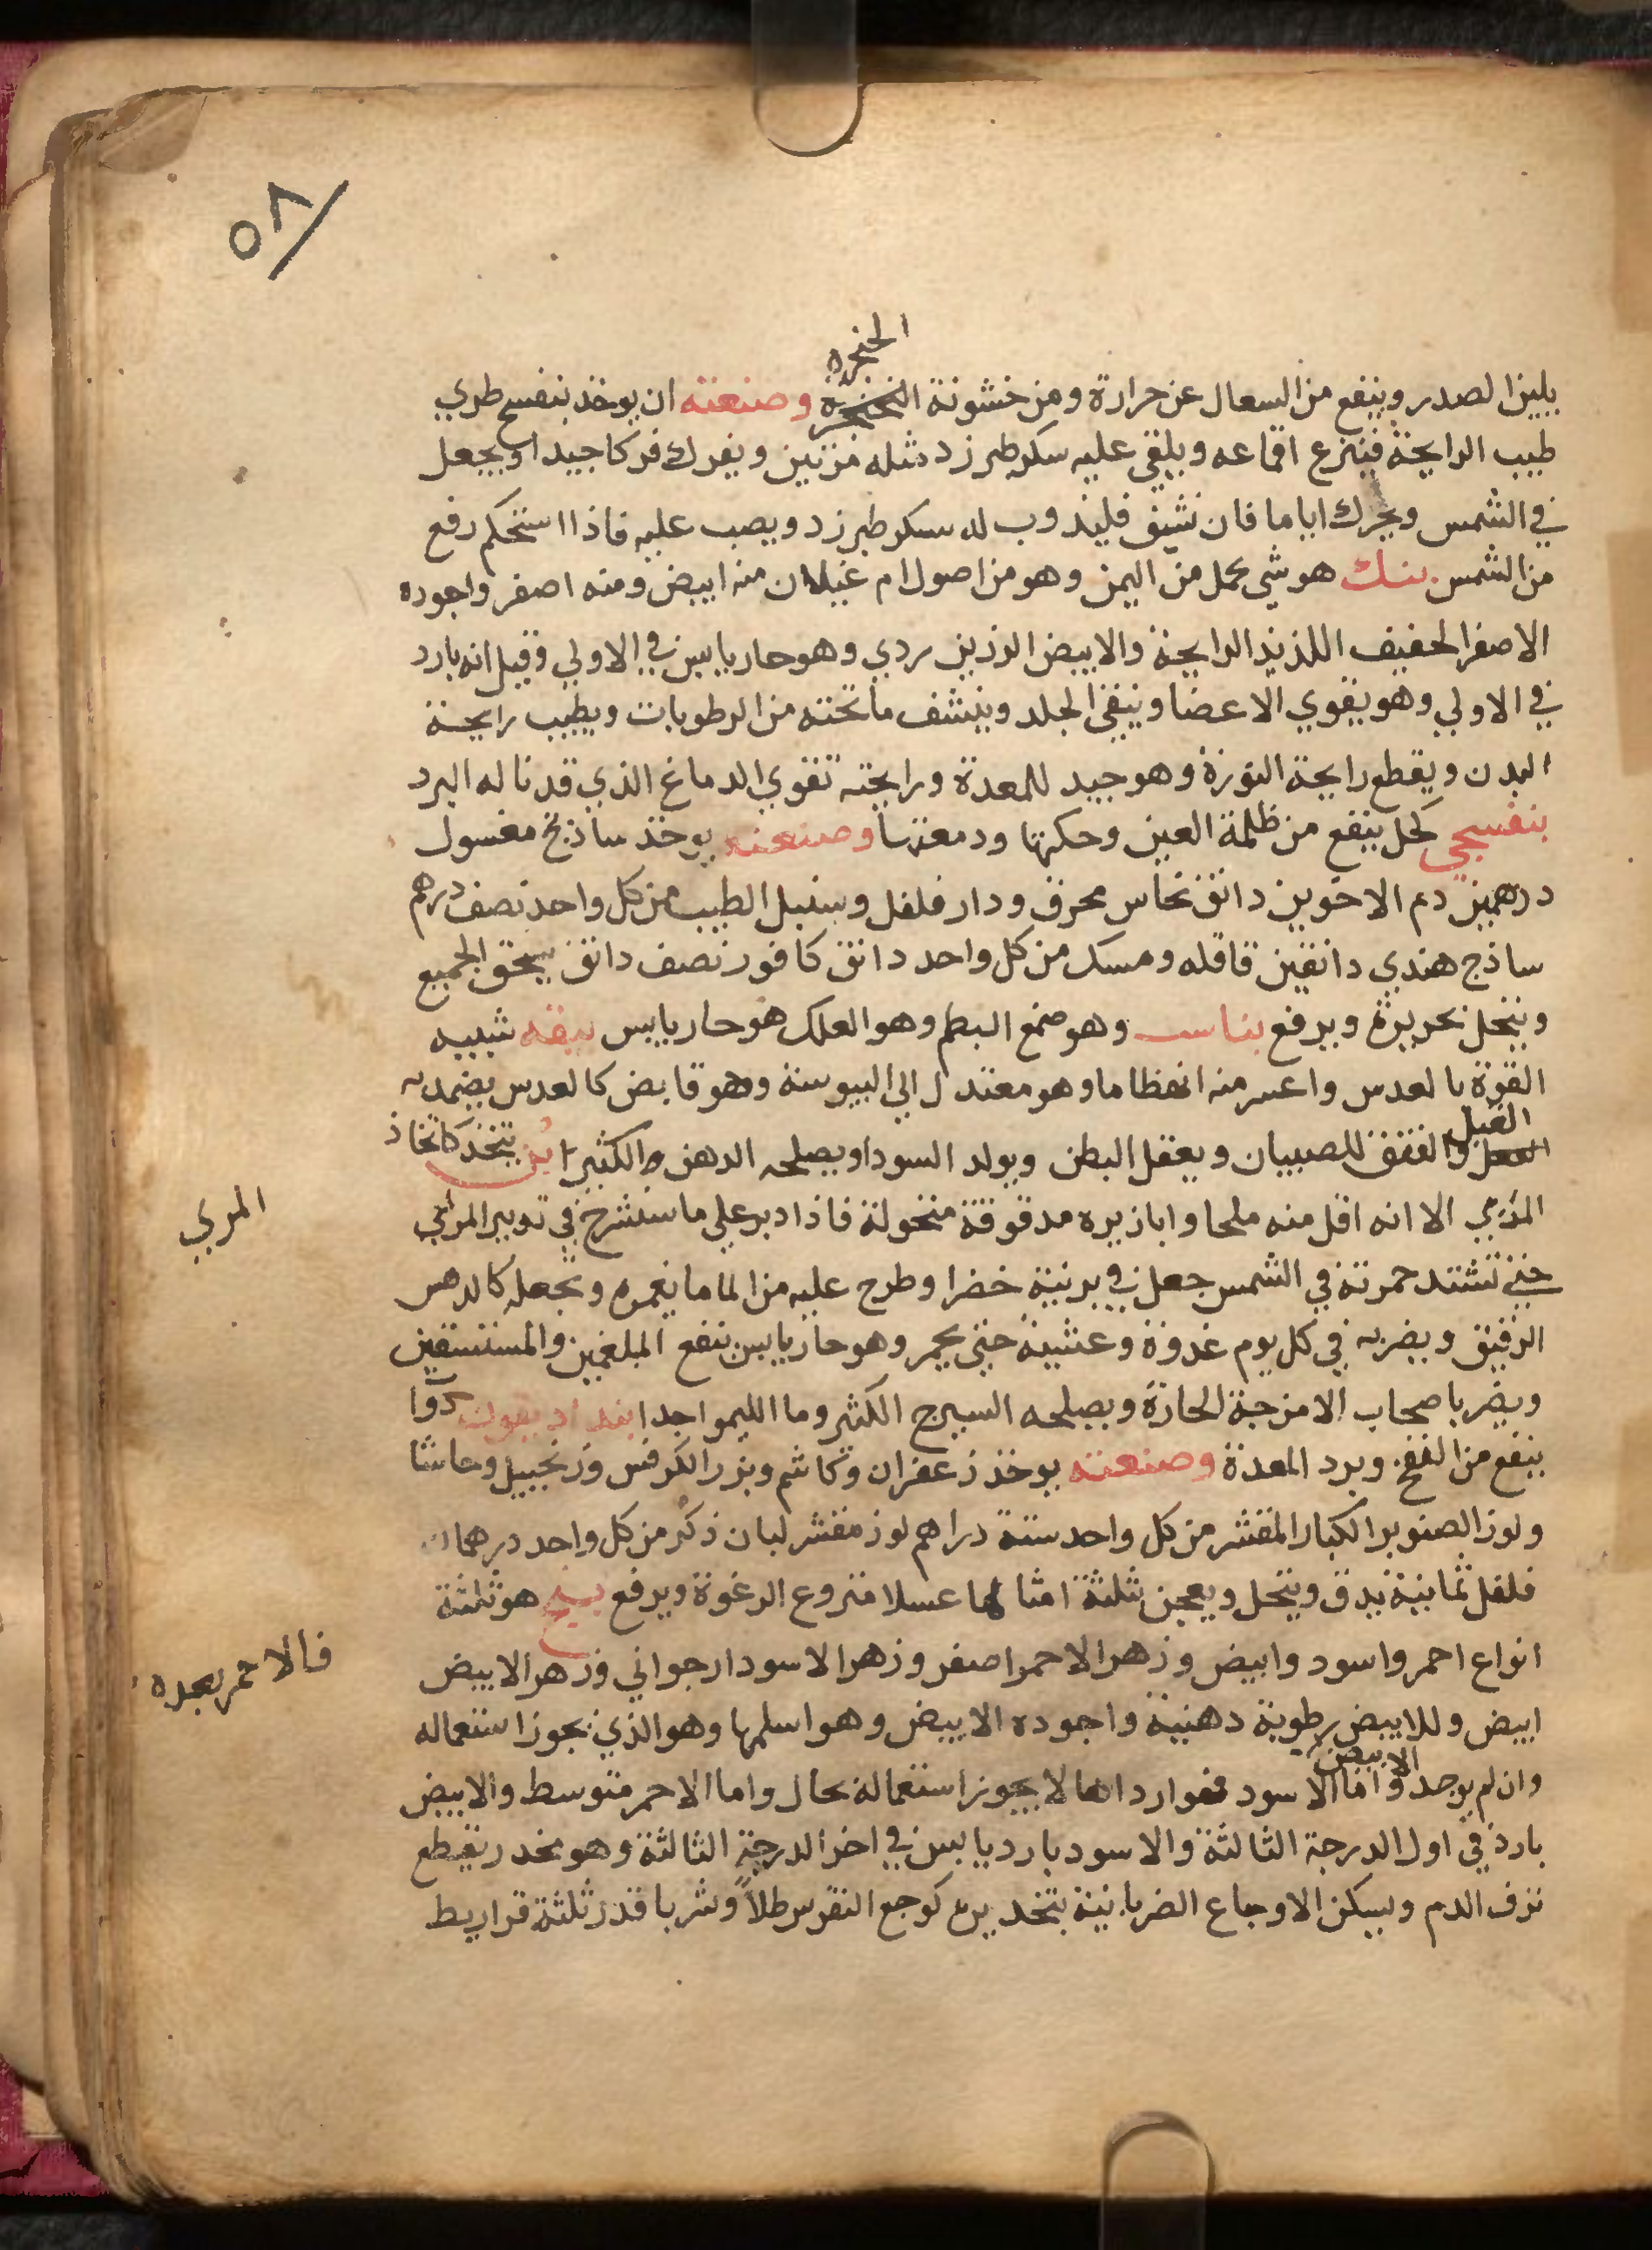 ٥٨
الحنجره
يلين الصدر وينفع من السعال عن حرارة ومن خشونة وصنعته ان يوخذ بنفسج طري
طيب الرايحة فينزع اقماعه ويلقى عليه سكر طبرزد مثله مرتين ويفرك فركا جيدا ويجعل
في الشمس ويحرك اياما فان نشف فليذوب له سكر طبرزد ويصب عليه فاذا استحكم رفع
من الشمس بنك هو شي يحمل من اليمن وهو من اصول ام غيلان منه ابيض ومنه اصفر واجوده
الاصفر الخفيف اللذيذ الرايحة والابيض الرزين ردي وهو حار يابس في الاولي وقيل انه بارد
في الاولي وهو يقوي الاعضا وينقي الجلد وينشف ما تحته من الرطوبات ويطيب رايحة
البدن ويقطع رايحة النورة وهو جيد للمعدة ورايحته تقوي الدماغ الذي قد ناله البرد
بنفسجي كحل ينفع من ظلمة العين وحكتها ودمعتها وصنعته يوخذ ساذنج مغسول
درهمين دم الاخوين دانق نحاس محرق ودار فلفل وسنبل الطيب من كل واحد نصف درهم
ساذج هندي دانقين قاقله ومسك من كل واحد دانق كافور نصف دانق يسحق الجميع
وينخل بحريرة ويرفع بناست وهو صمغ البطم وهو العلك هو حار يابس بيقه شبيه
القوة بالعدس واعسر منه انهظاما وهو معتدل الي اليبوسة وهو قابض كالعدس يضمد به
القيل
والفتق للصبيان ويعقل البطن ويولد السودا ويصلحه الدهن والكثيرا بن يتخذ كاتخاذ
المري الا انه اقل منه ملحا واباز يره مدقوقة منخولة فاذا دبر علي ما سنشرح في تدبير المري
المري
حتي تشتد حمرته في الشمس جعل في برنية خضرا وطرح عليه من الما ما يغمره ويجعله كالدهن
الرقيق ويضربه في كل يوم غدوة وعشية حتي يحمر وهو حار يابس ينفع البلغمين والمستسقين
ويضر باصحاب الامزجة الحارة ويصلحه السيرج الكثير وما الليموا جدا بنداديقون دوا
ينفع من النفخ وبرد المعدة وصنعته يوخذ زعفران وكاشم وبزر الكرفس وزنجبيل وحاشا
ولوز الصنوبر الكبار المقشر من كل واحد ستة دراهم لوز مقشر لبان ذكر من كل واحد درهمان
فلفل ثمانية يدق وينخل ويعجن بثلثة امثالها عسلا منزوع الرغوة ويرفع بنج هو ثلثة
انواع احمر واسود وابيض وزهر الاحمر اصفر وزهر الاسود ارجواني وزهر الابيض
فالاحمر بعده
ابيض وللابيض رطوبة دهنية واجوده الابيض وهو اسلمها وهو الذي يجوز استعماله
الابيض
وان لم يوجد واما الاسود فهو اردااها لا يجوز استعماله بحال واما الاحمر متوسط والابيض
بارد في اول الدرجة الثالثة والاسود بارد يابس في اخر الدرجة الثالثة وهو مخدر يقطع
نزف الدم ويسكن الاوجاع الضربانية بتخديره كوجع النقرس طلاً وشربا قدر ثلثة قراريط